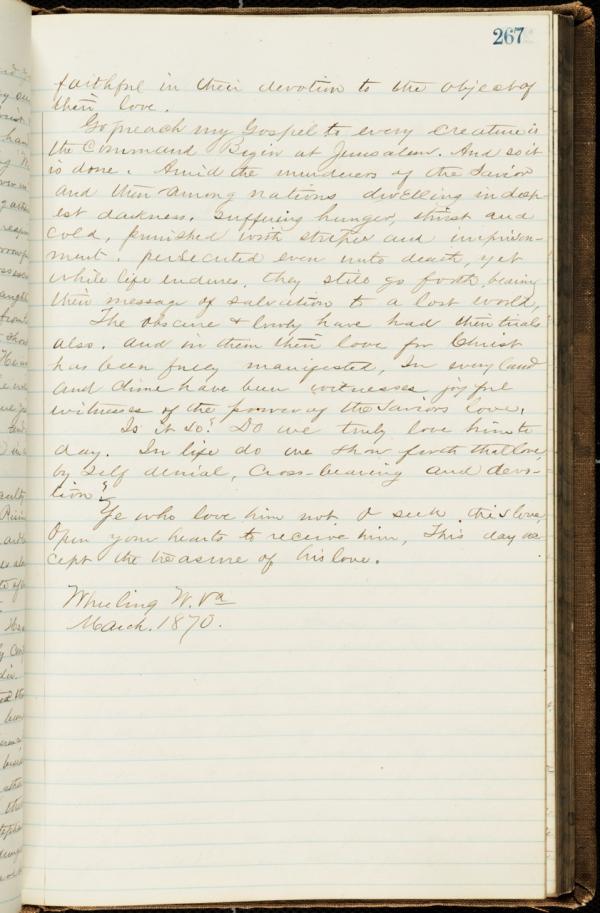 267
faithful in their devotion to the object of
their love.
Go preach my Gospel to every creature is
the command Begin at Jerusalem. And so it
is done. Amid the murderers of the Savior
and then among nations dwelling in deep-
est darkness. Suffering hunger, thirst and
cold, punished with stripes and imprison-
ment. persecuted even unto death, yet
while life endures, they still go forth bearing
their message of salvation to a lost world,
The obscure & lowly have had their trials
also. and in them their love for Christ
has been freely manifested, In every land
and clime have been witnesses joyful
witnesses of the power of the Saviors love.
Is it so? Do we truly love him to
day. In life do we show forth that love,
by self denial, Cross-bearing and devo-
tion?
Ye who love him not O seek this love,
Open your hearts to receive him, This day ac-
cept the treasure of his love.
Wheeling W. Va
March. 1870.